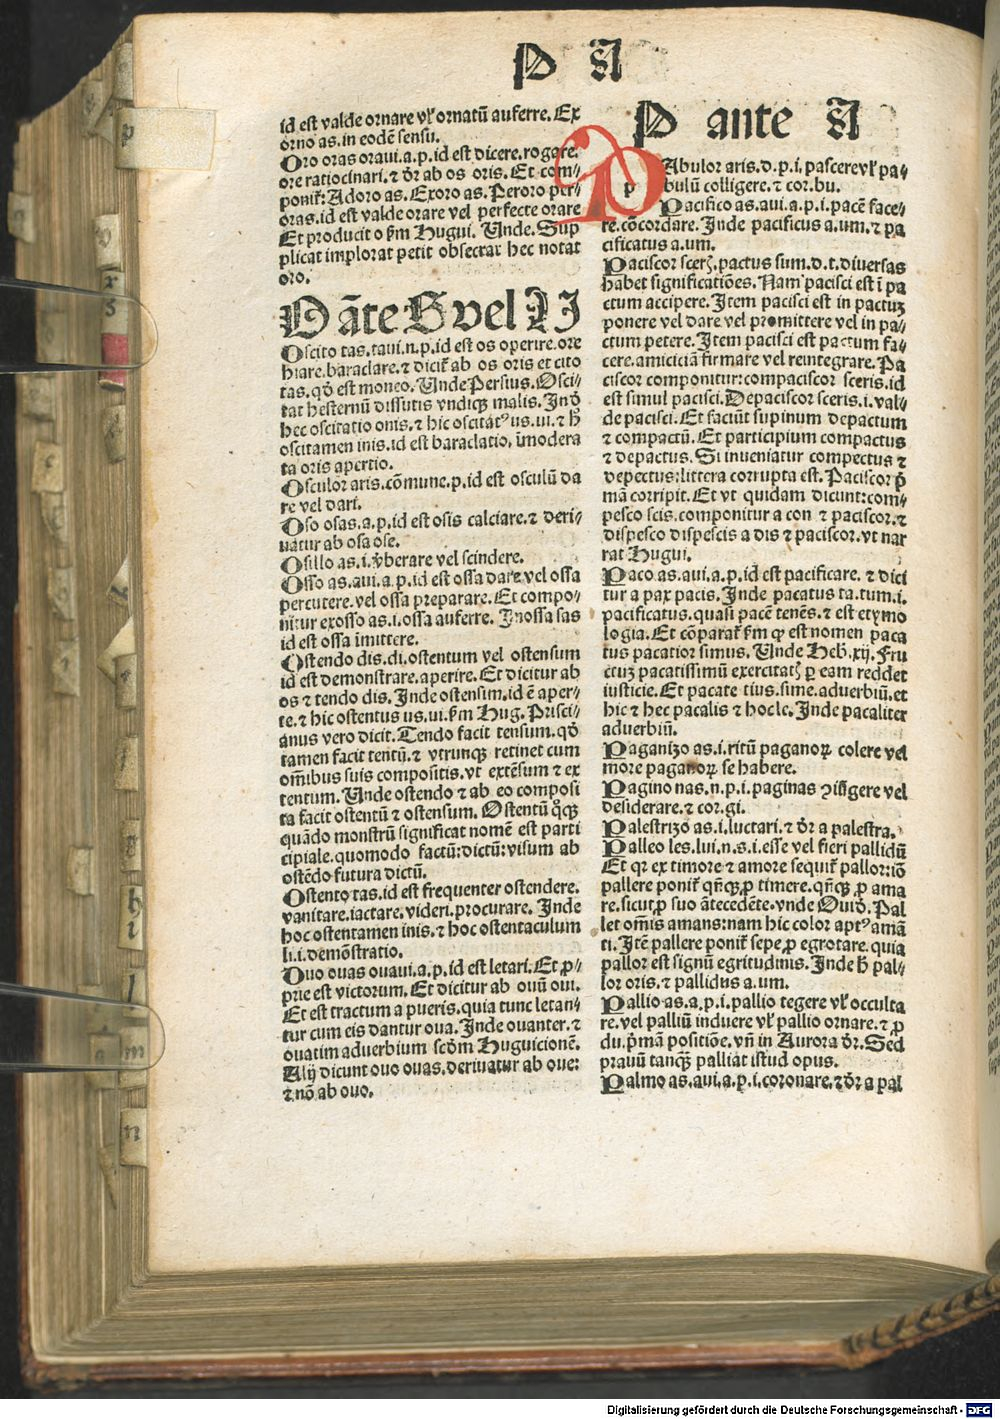 P A
id est valde ornare vꝉ ornatū auferre. Ex
orno as. in eodē sensu.
Oro oras oraui. a. p. id est dicere. rogare.
ore ratiocinari. ⁊ dr̄ ab os oris. Et com⸗
ponit̄: Adoro as. Exoro as. Peroro per⸗
oras. id est valde orare vel perfecte orare
Et producit o ẜm Hugui. Unde. Sup
plicat implorat petit obsecrat hec notat
oro.
O āte S vel U
Oscito tas. taui. n. p. id est os operire. ore
hiare. baraclare. ⁊ dicit̄ ab os oris et cito
tas. qd̓ est moneo. Unde Persius. Osci⸗
tat hesternū dissutis vndiqꝫ malis. Inď
hec oscitatio onis. ⁊ hic oscitatꝰ us. ui. ⁊ ħ
oscitamen inis. id est baraclatio. īmodera
ta oris apertio.
Osculor aris. cōmune. p. id est osculū da
re vel dari.
Oso osas. a. p. id est osis calciare. ⁊ deri⸗
uatur ab osa ose.
Osillo as. i. v̓berare vel scindere.
Osso as. aui. a. p. id est ossa dare vel ossa
percutere. vel ossa preparare. Et compo⸗
nitur exosso as. i. ossa auferre. Inossa sas
id est ossa īmittere.
Ostendo dis. di. ostentum vel ostensum
id est demonstrare. aperire. Et dicitur ab
os ⁊ tendo dis. Inde ostensim. id ē aper⸗
te. ⁊ hic ostentus us. ui. ẜm Hug. Prisci⸗
anus vero dicit. Tendo facit tensum. qd̓
tamen facit tentū. ⁊ vtrunqꝫ retinet cum
om̄ibus suis compositis. vt extēsum ⁊ ex
tentum. Unde ostendo ⁊ ab eo composi
ta facit ostentū ⁊ ostensum. Ostentū qn̄qꝫ
quādo monstrū significat nomē est parti
cipiale. quomodo factū: dictū: visum ab
ostēdo futura dictū.
Ostento tas. id est frequenter ostendere.
vanitare. iactare. videri. procurare. Inde
hoc ostentamen inis. ⁊ hoc ostentaculum
li. i. demōstratio.
Ouo ouas ouaui. a. p. id est letari. Et ꝓ⸗
prie est victorum. Et dicitur ab ouū oui.
Et est tractum a pueris. quia tunc letan⸗
tur cum eis dantur oua. Inde ouanter. ⁊
ouatim aduerbium scd̓m Huguicionē.
Alij dicunt ouo ouas. deriuatur ab oue:
⁊ nō ab ouo.
P ante A
PAbulor aris. d. p. i. pascere vꝉ pa⸗
p bulū colligere. ⁊ cor. bu.
Pacifico as. aui. a. p. i. pacē face⸗
re. cōcordare. Inde pacificus a. um. ⁊ pa
cificatus a. um.
Paciscor scerꝭ. pactus sum. d. t. diuersas
habet significatiōes. Nam pacisci est ī pa
ctum accipere. Item pacisci est in pactuꝫ
ponere vel dare vel promittere vel in pa⸗
ctum petere. Item pacisci est pactum fa⸗
cere. amiciciā firmare vel reintegrare. Pa
ciscor componitur: compaciscor sceris. id
est simul pacisci. Depaciscor sceris. i. val⸗
de pacisci. Et faciūt supinum depactum
⁊ compactū. Et participium compactus
⁊ depactus. Si inueniatur compectus ⁊
depectus: littera corrupta est. Paciscor p̄
mā corripit. Et vt quidam dicunt: com⸗
pesco scis. componitur a con ⁊ paciscor. ⁊
dispesco dispescis a dis ⁊ paciscor. vt nar
rat Hugui.
Paco as. aui. a. p. id est pacificare. ⁊ dici
tur a pax pacis. Inde pacatus ta. tum. i.
pacificatus. quasi pacē tenēs. ⁊ est etymo
logia. Et cōparat̄ ẜm ꝙ est nomen paca
tus pacatior simus. Unde Heb. xij. Fru
ctuꝫ pacatissimū exercitatꝭ ꝑ eam reddet
iusticie. Et pacate tius. sime. aduerbiū. et
hic ⁊ hec pacalis ⁊ hoc le. Inde pacaliter
aduerbiū.
Paganizo as. i. ritū paganoꝝ colere vel
more paganoꝝ se habere.
Pagino nas. n. p. i. paginas ꝯiūgere vel
desiderare. ⁊ cor. gi.
Palestrizo as. i. luctari. ⁊ dr̄ a palestra.
Palleo les. lui. n. s. i. esse vel fieri pallidū
Et qꝛ ex timore ⁊ amore sequit̄ pallor: iō
pallere ponit̄ qn̄qꝫ ꝓ timere. qn̄qꝫ ꝓ ama
re. sicut ꝓ suo āntecedēte. vnde Ouid̓. Pal
let om̄is amans: nam hic color aptꝰ amā
ti. Itē pallere ponit̄ sepe ꝓ egrotare. quia
pallor est signū egritudinis. Inde ħ pal⸗
lor oris. ⁊ pallidus a. um.
Pallio as. a. p. i. pallio tegere vꝉ occulta
re. vel palliū induere vꝉ pallio ornare. ⁊ ꝓ
du. p̄mā positiōe. vn̄ in Aurora dr̄. Sed
prauū tanqꝫ palliat istud opus.
Palmo as. aui. a. p. i. coronare. ⁊ dr̄ a pal
p
v
r
s
h
i
l
m
n
Digitalisierung gefördert durch die Deutsche Forschungsgemeinschaft - DFG